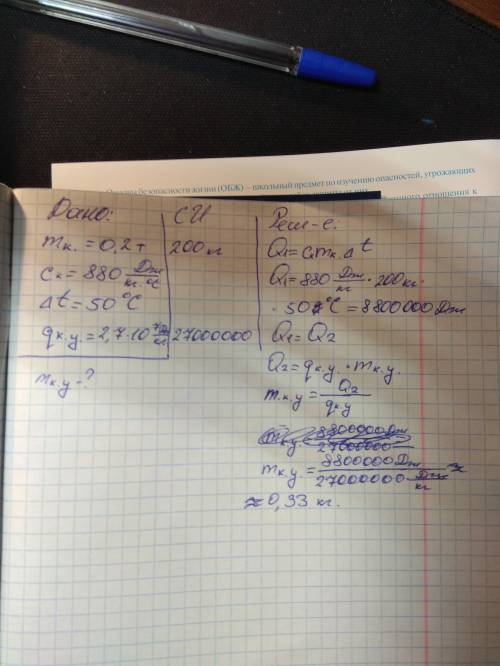 Основы безопасности жизни (ОБЖ) – школьный предмет по изучению опасностей, угрожающих
отношения к
Дано:
mк. = 0,2 т
cк = 880 Дж/кг·°С
Δt = 50°С
qк.у. = 2,7·10 Дж/кг
mк.у - ?
СИ
200 кг
27000000
Реш-е:
Q1 = cкmк Δt
Q1 = 880 Дж/кг · 200 кг ·
· 50 °С = 8800000 Дж
Q1 = Q2
Q2 = qк.у. · mк.у.
mк.у = Q2/qк.у
mк.у = 8800000 Дж/27000000
mк.у = 8800000 Дж/27000000 Дж/кг ≈
≈ 0,33 кг.